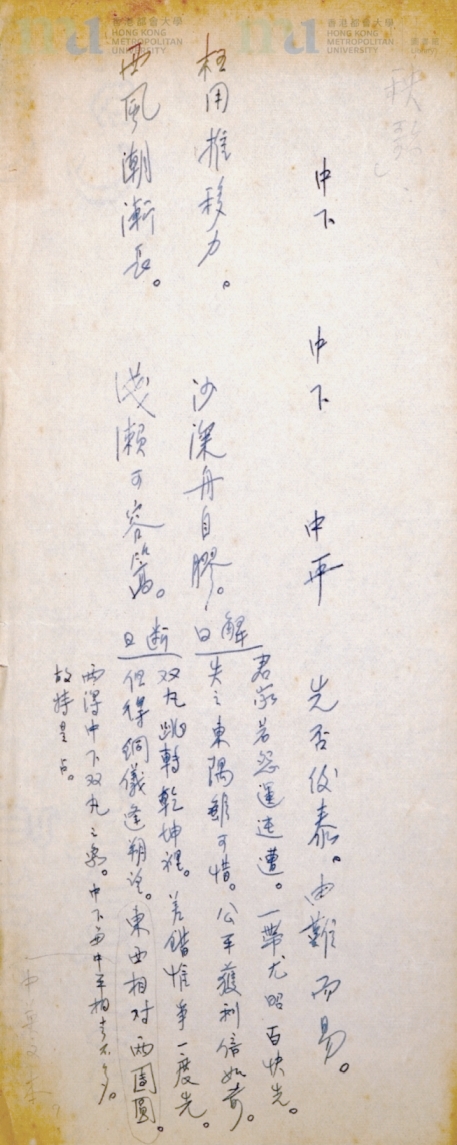 香港都會大學
HONG KONG
METROPOLITAN
UNIVERSITY
香港都會大學
HONG KONG
METROPOLITAN
UNIVERSITY
中下 中下 中平 先否後泰。由難而易。
枉用推移力。沙深舟自膠。
西風潮漸長。淺瀨可容篙。
解曰
君家若怨運迍邅。一帶尤昭百快先。
失之東隅雖可惜。公平獲利倍如前。
斷曰
双丸跳轉乾坤裡。差錯惟爭一度先。
但得銅儀逢朔望。東西相对兩團圓。
兩得中下双丸之象。中下與中平相去不多。
故特是占。